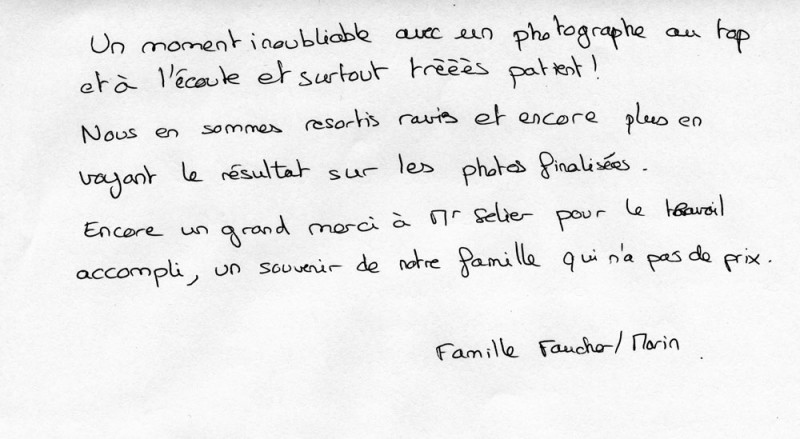 Un moment inoubliable avec un photographe au top
et à l'écoute et surtout trèèès patient !
Nous en sommes resortis ravis et encore plus en
voyant le résultat sur les photos finalisées.
Encore un grand merci à Mr Selier pour le travail
accompli, un souvenir de notre famille qui n'a pas de prix.
Famille Faucher/Morin